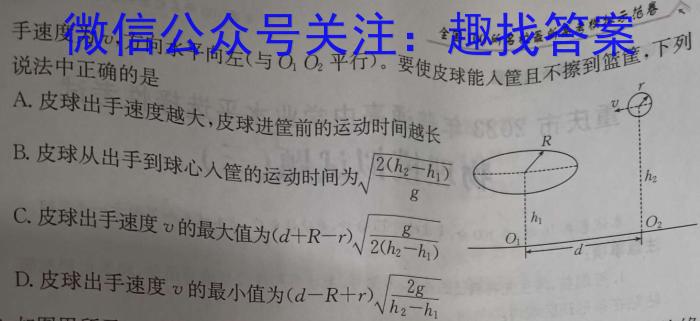 微信公众号关注：趣找答案
手速度
水平向左(与O₁O₂平行)。要使皮球能入筐且不擦到篮筐,下列
说法中正确的是
A. 皮球出手速度越大,皮球进筐前的运动时间越长
B. 皮球从出手到球心入筐的运动时间为√(2(h₂−h₁)/g)
C. 皮球出手速度 v 的最大值为(d+R−r)√(g/(2(h₂−h₁)))
D. 皮球出手速度 v 的最小值为(d−R+r)√(2g/(h₂−h₁))
r
v
R
h₂
h₁
O₁
O₂
d